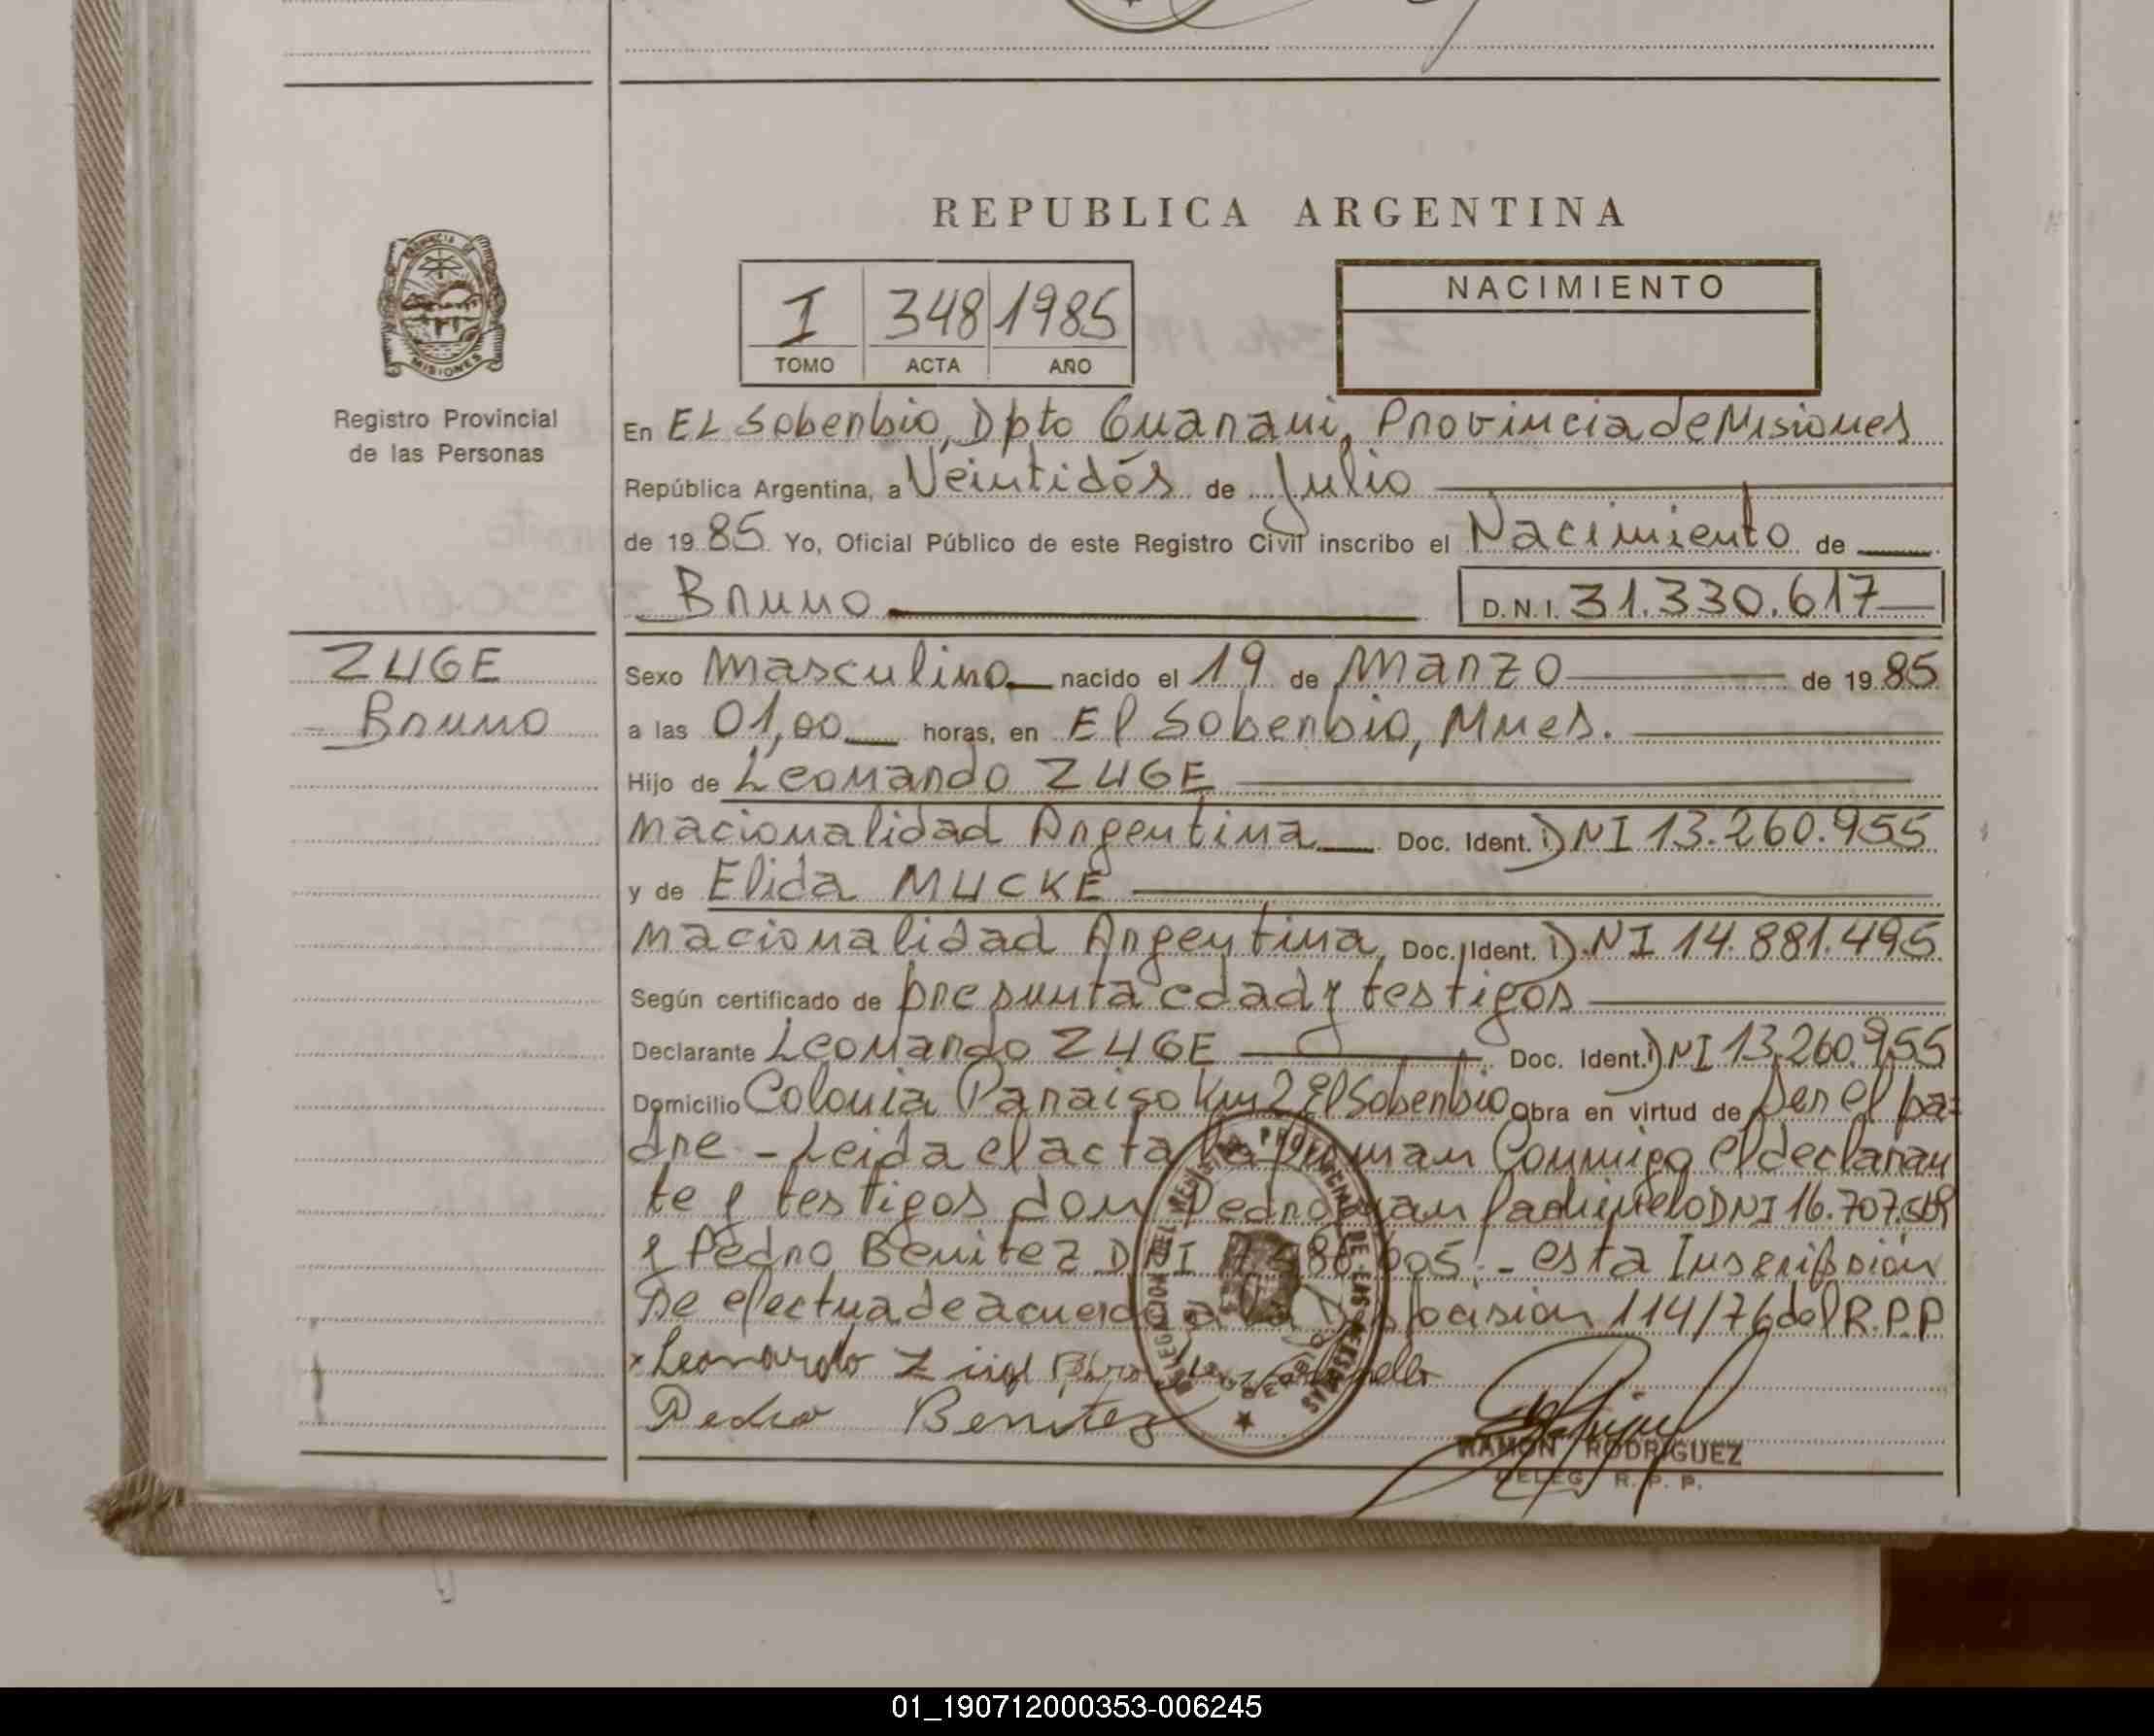 REPUBLICA ARGENTINA
PROVINCIA DE
MISIONES
Registro Provincial
de las Personas
I 348 1985
TOMO ACTA AÑO
NACIMIENTO
En EL Soberbio, Dpto Guarani, Provincia de Misiones
República Argentina, a Veintidós de Julio
de 1985 Yo, Oficial Público de este Registro Civil inscribo el Nacimiento de
Bruno D.N.I. 31.330.617
ZUGE
Bruno
Sexo Masculino nacido el 19 de Marzo de 1985
a las 01,00 horas, en El Soberbio, Mnes.
Hijo de Leonardo ZUGE
nacionalidad Argentina Doc. Ident. DNI 13.260.955
y de Elida MUCKE
nacionalidad Argentina, Doc. Ident. DNI 14.881.495
Según certificado de presunta edad y testigos
Declarante Leonardo ZUGE Doc. Ident. DNI 13.260.955
Domicilio Colonia Paraiso Km 2 El Soberbio Obra en virtud de ser el pa=
dre - Leida el acta la firman Conmigo el declaran
te y testigos don Pedro DNI 16.707.
y Pedro Benitez DNI - esta Inscripsión
se efectua de acuerdo a la Dispocision 114/76 del R.P.P
x Leonardo
Pedro Benitez
RAMON RODRIGUEZ
DELEG. R. P. P.
01_190712000353-006245